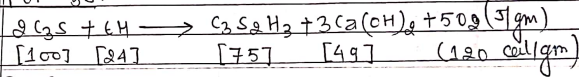 2C3S + 6H ⟶ C3S2H3 + 3Ca(OH)2 + 502 (J/gm)
[100] [24] [75] [49] (120 cal/gm)